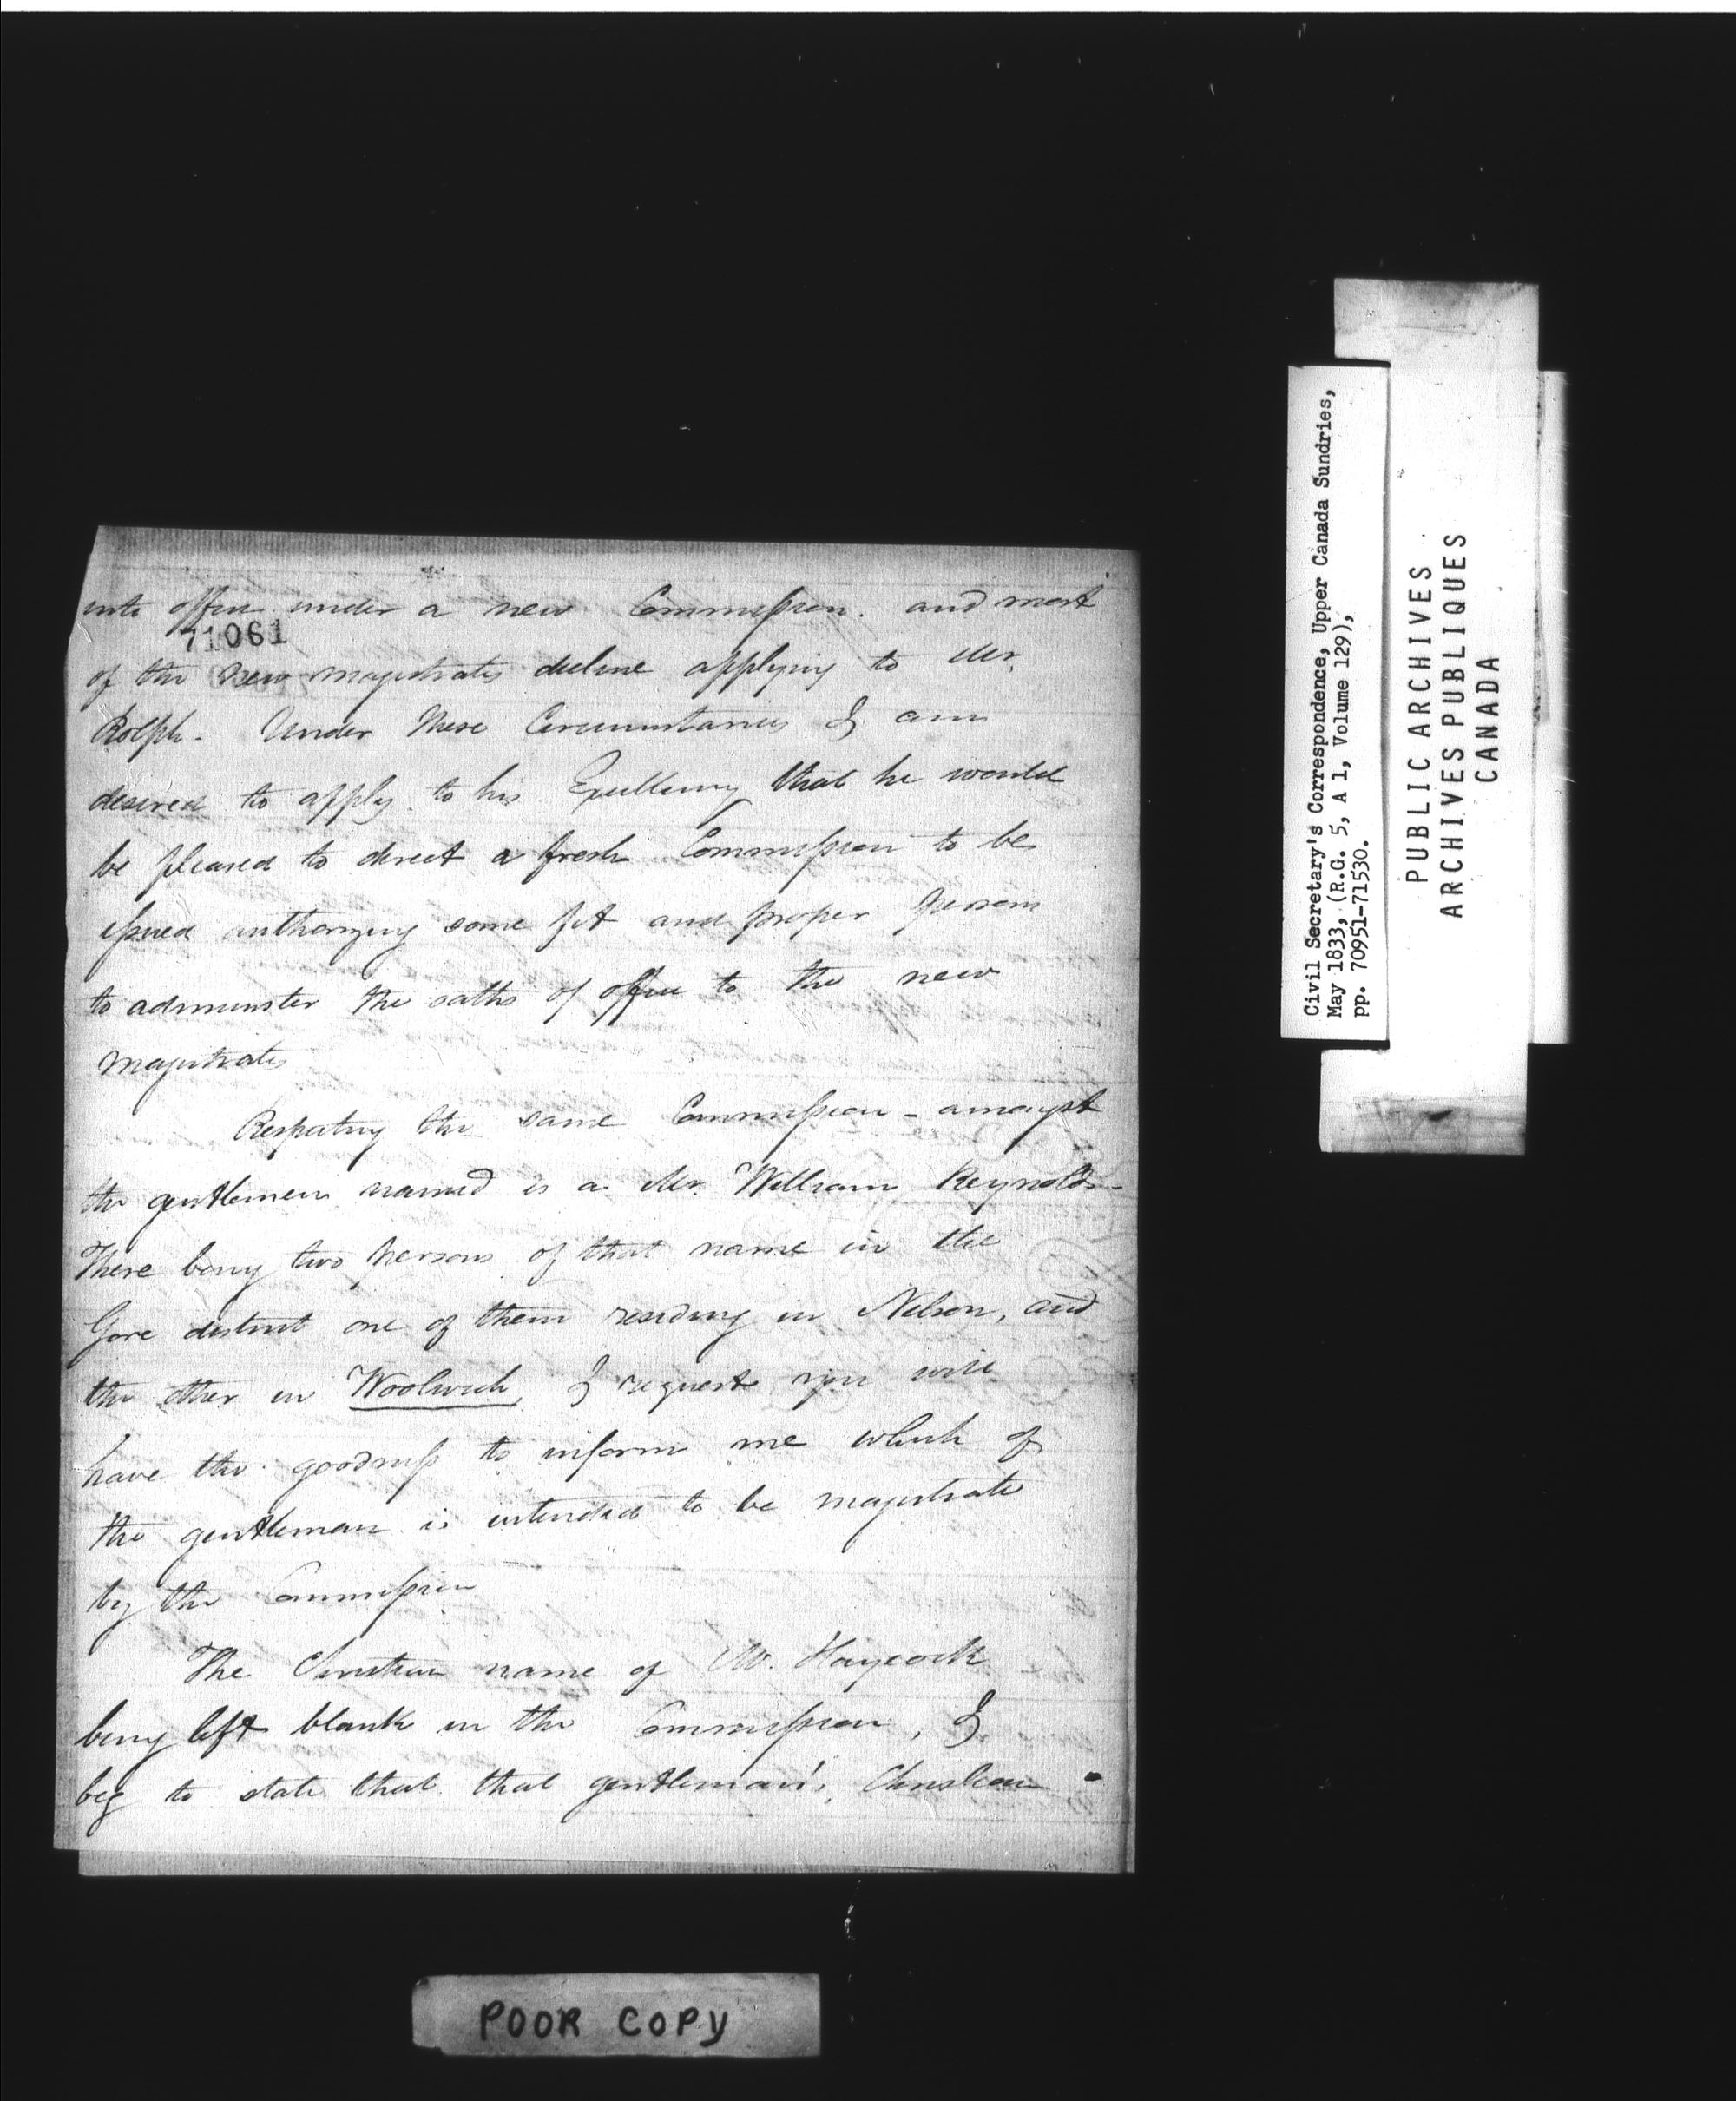 into office under a new Commission. and most
71061
of the new magistrates decline applying to Mr.
Rolph. Under these Circumstances I am
desired to apply to his Excellency that he would
be pleased to direct a fresh Commission to be
issued authorizing some fit and proper person
to administer the oaths of office to the new
magistrates
Respecting the same Commission - amongst
the gentlemen named is a Mr. William Reynolds -
There being two persons of that name in the
Gore district one of them residing in Nelson, and
the other in Woolwich, I request you will
have the goodness to inform me which of
the gentleman is intended to be magistrate
by the Commission
The Christian name of Mr. Haycock
being left blank in the Commission, I
beg to state that that gentleman's Christian
Civil Secretary's Correspondence, Upper Canada Sundries,
May 1833, (R.G. 5, A 1, Volume 129),
pp. 70951-71530.
PUBLIC ARCHIVES
ARCHIVES PUBLIQUES
CANADA
POOR COPY